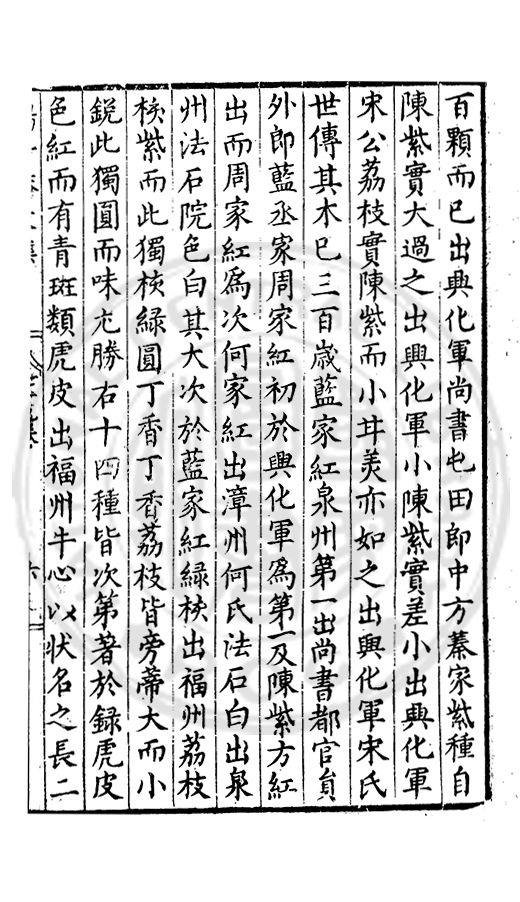 百顆而已出興化軍尚書屯田郎中方蓁家紫種自
陳紫實大過之出興化軍小陳紫實差小出興化軍
宋公荔枝實陳紫而小甘美亦如之出興化軍宋氏
世傳其木已三百歲藍家紅泉州第一出尚書都官員
外郎藍丞家周家紅初於興化軍爲第一及陳紫方紅
出而周家紅爲次何家紅出漳州何氏法石白出泉
州法石院色白其大次於藍家紅緑核出福州荔枝
核紫而此獨核緑圓丁香丁香荔枝皆旁蒂大而小
鋭此獨圓而味尤勝右十四種皆次第著於録虎皮
色紅而有青斑類虎皮出福州牛心以狀名之長二